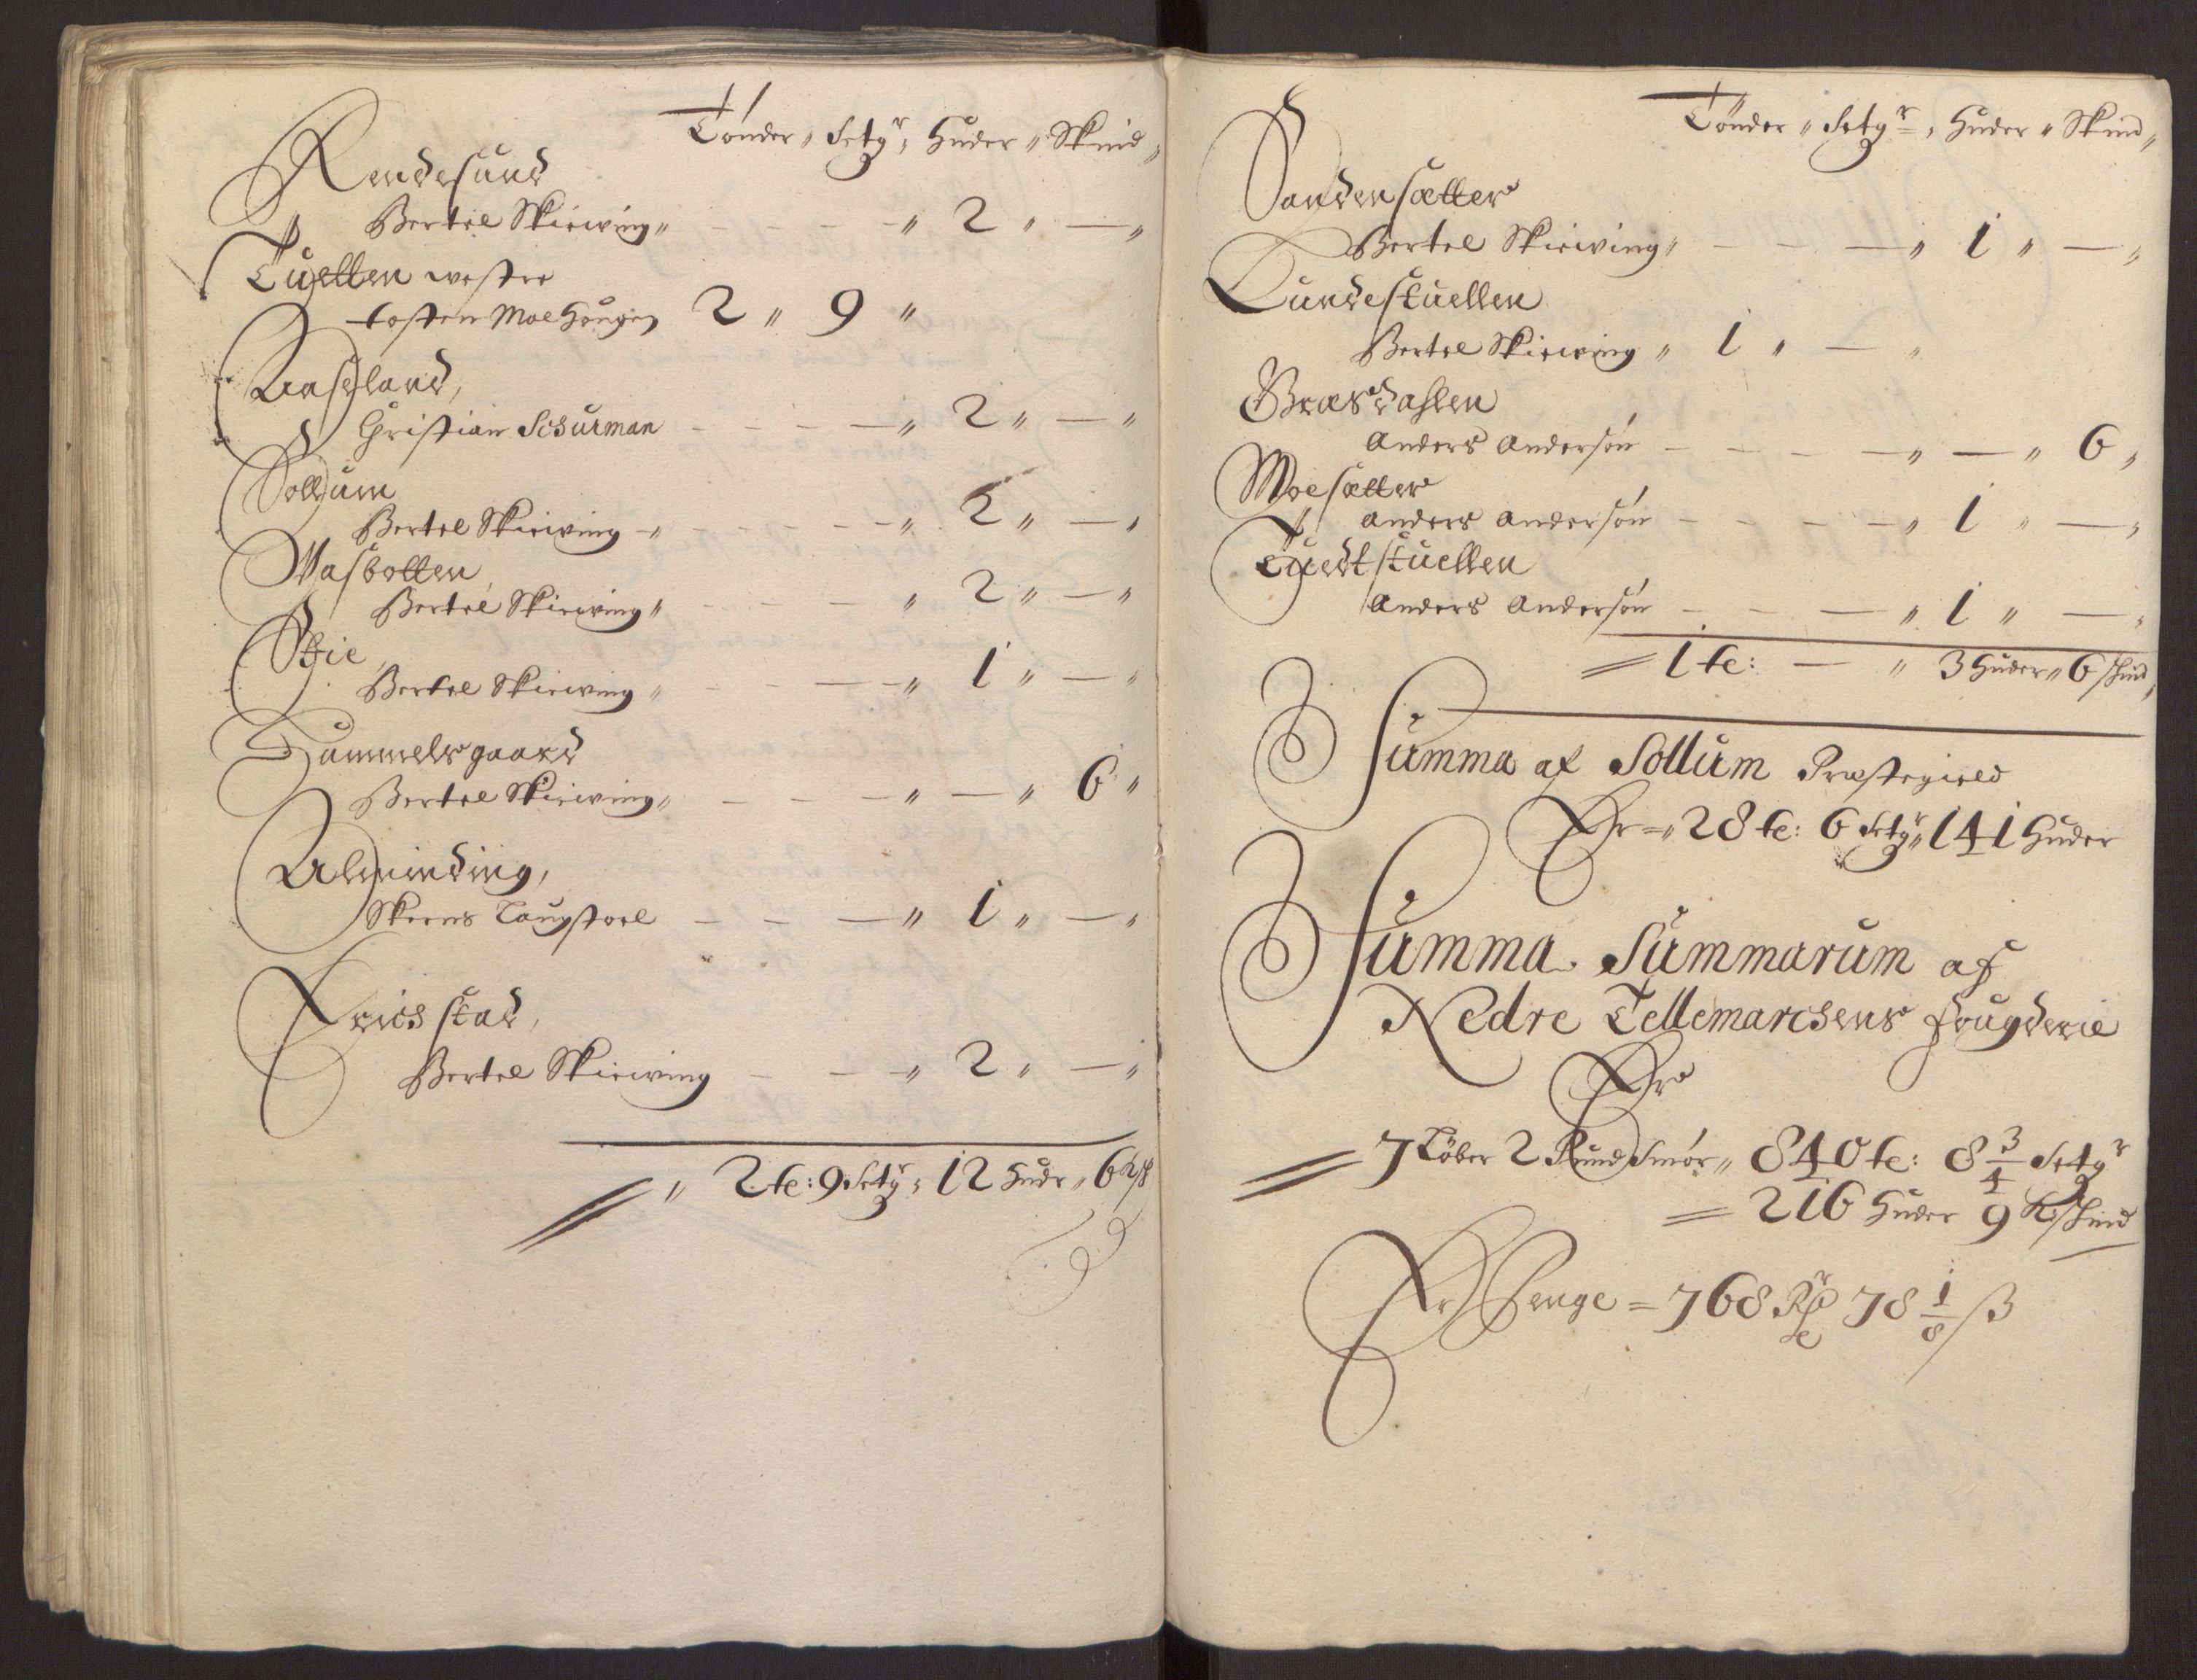 Tønder „ Setgr „ Huder „ Skind „
Rendesund
Bertel Skierving „ — — — — „ 2 „ — „
Tuetten westre
tosten Moehougen 2 „ 9 „
Aasland,
Christian Schurman — — — — „ 2 „ — „
Sollum
Bertel Skierving — „ — — — — „ 2 „ — „
Aasbotten,
Bertel Skierving „ — — — — „ 2 „ — „
Stie,
Bertel Skierving „ — — — — „ 1 „ — „
Hummelsgaard
Bertel Skierving „ — — — — „ — „ 6 „
Alminding,
Skeens Laugstoel — — — „ 1 „ — „
Erichstad,
Bertel Skierving — — — „ 2 „ — „
„ 2 te: 9 Setgr „ 12 Hudr „ 6 ksk
Tønder „ Setgr „ Huder „ Skind „
Sandersætter
Bertel Skierving „ — — — „ 1 „ — „
Lundestuellen
Bertel Skierving „ 1 „ — „
Bræsdahlen
Anders Andersøn — — — — „ — „ 6 „
Moesætter
Anders Andersøn — — — — „ 1 „ — „
Tuedtstuellen
Anders Andersøn — — — „ 1 „ — „
= 1 te: — „ 3 Huder „ 6 skind „
Summa af Sollum Præstegield
Er = „ 28 te: 6 Setgr „ 141 Huder
Summa Summarum af
Nedre Tellemarchens fougderie
Er
= 7 Løber 2 Pund Smør „ 840 te: 8 3/4 Setgr
= 216 Huder 9 K:skind
Er Penge = 768 Rdr 78 1/8 ß